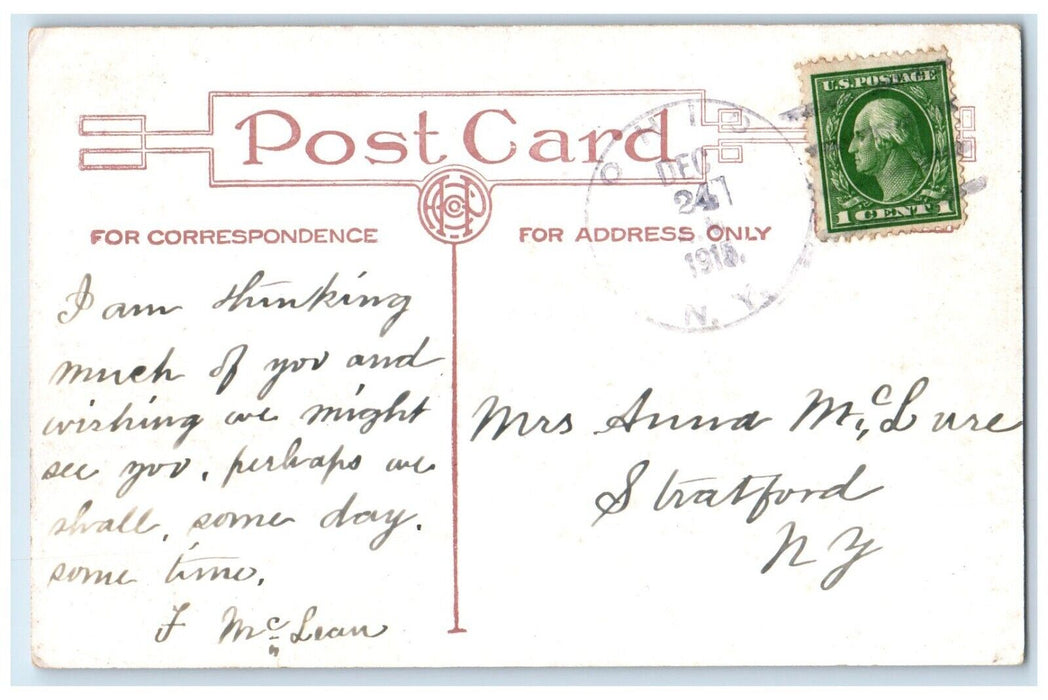 Post Card
FOR CORRESPONDENCE
FOR ADDRESS ONLY
OHIO
DEC
24
1915.
N. Y.
U.S. POSTAGE
1 CENT 1
I am thinking
much of you and
wishing we might
see you, perhaps we
shall, some day.
some time.
F McLean
Mrs Anna McLure
Stratford
N Y